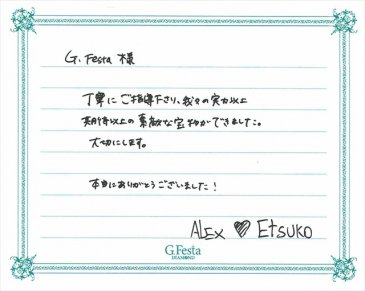 G. Festa 様
丁寧に ご指導下さり、我々の実力以上
期待以上の素敵な宝物ができました。
大切にします。
本当にありがとうございました!
ALEX ♥ ETSUKO
G.Festa
DIAMOND